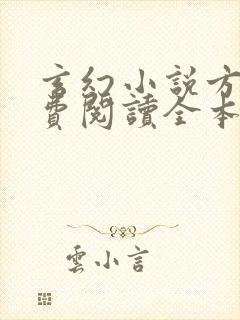 玄幻小說方
費閱讀全本
雲小言